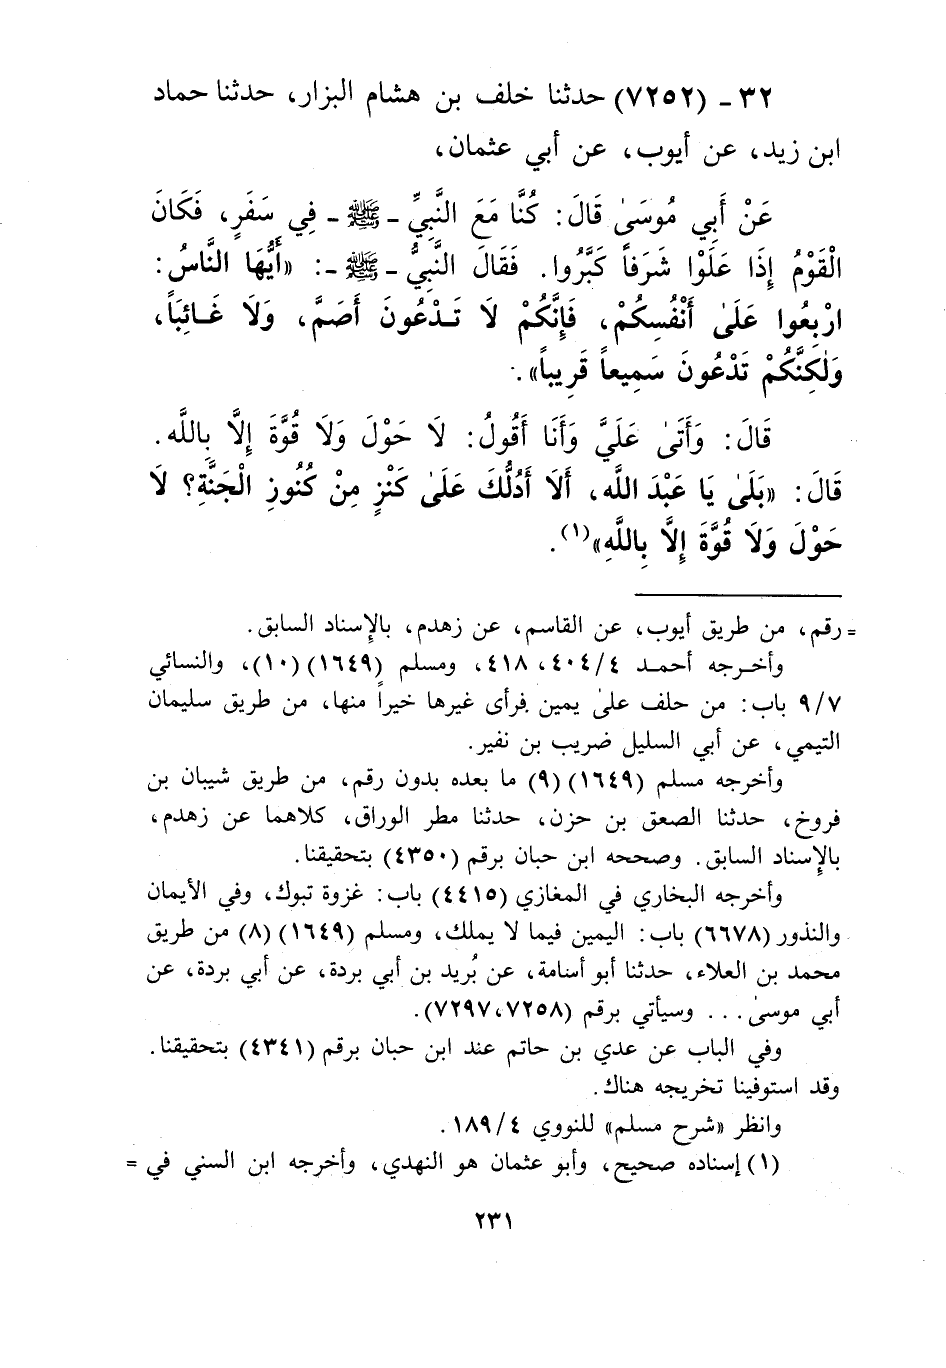 ٣٢ - (٧٢٥٢) حدثنا خلف بن هشام البزار، حدثنا حماد
ابن زيد، عن أيوب، عن أبي عثمان،
عَنْ أَبِي مُوسَىٰ قَالَ: كُنَّا مَعَ النَّبِيِّ - ﷺ - فِي سَفَرٍ، فَكَانَ
الْقَوْمُ إِذَا عَلَوْا شَرَفاً كَبَّرُوا. فَقَالَ النَّبِيُّ - ﷺ -: «أَيُّهَا النَّاسُ:
ارْبعُوا عَلَىٰ أَنْفُسِكُمْ، فَإِنَّكُمْ لَا تَدْعُونَ أَصَمَّ، وَلَا غَائِبَاً،
وَلٰكِنَّكُمْ تَدْعُونَ سَمِيعاً قَرِيباً».
قَالَ: وَأَتَىٰ عَلَيَّ وَأَنَا أَقُولُ: لَا حَوْلَ وَلَا قُوَّةَ إِلَّا بِاللَّه.
قَالَ: «بَلَىٰ يَا عَبْدَ اللَّه، أَلَا أَدُلُّكَ عَلَىٰ كَنْزٍ مِنْ كُنُوزِ الْجَنَّةِ؟ لَا
حَوْلَ وَلَا قُوَّةَ إِلَّا بِاللَّهِ»(١).
= رقم، من طريق أيوب، عن القاسم، عن زهدم، بالإسناد السابق.
وأخرجه أحمد ٤/٤٠٤، ٤١٨، ومسلم (١٦٤٩) (١٠)، والنسائي
٩/٧ باب: من حلف علىٰ يمين فرأى غيرها خيراً منها، من طريق سليمان
التيمي، عن أبي السليل ضريب بن نفير.
وأخرجه مسلم (١٦٤٩) (٩) ما بعده بدون رقم، من طريق شيبان بن
فروخ، حدثنا الصعق بن حزن، حدثنا مطر الوراق، كلاهما عن زهدم،
بالإسناد السابق. وصححه ابن حبان برقم (٤٣٥٠) بتحقيقنا.
وأخرجه البخاري في المغازي (٤٤١٥) باب: غزوة تبوك، وفي الأيمان
والنذور (٦٦٧٨) باب: اليمين فيما لا يملك، ومسلم (١٦٤٩) (٨) من طريق
محمد بن العلاء، حدثنا أبو أسامة، عن بُريد بن أبي بردة، عن أبي بردة، عن
أبي موسىٰ... وسيأتي برقم (٧٢٥٨، ٧٢٩٧).
وفي الباب عن عدي بن حاتم عند ابن حبان برقم (٤٣٤١) بتحقيقنا.
وقد استوفينا تخريجه هناك.
وانظر «شرح مسلم» للنووي ٤/١٨٩.
(١) إسناده صحيح، وأبو عثمان هو النهدي، وأخرجه ابن السني في =
٢٣١